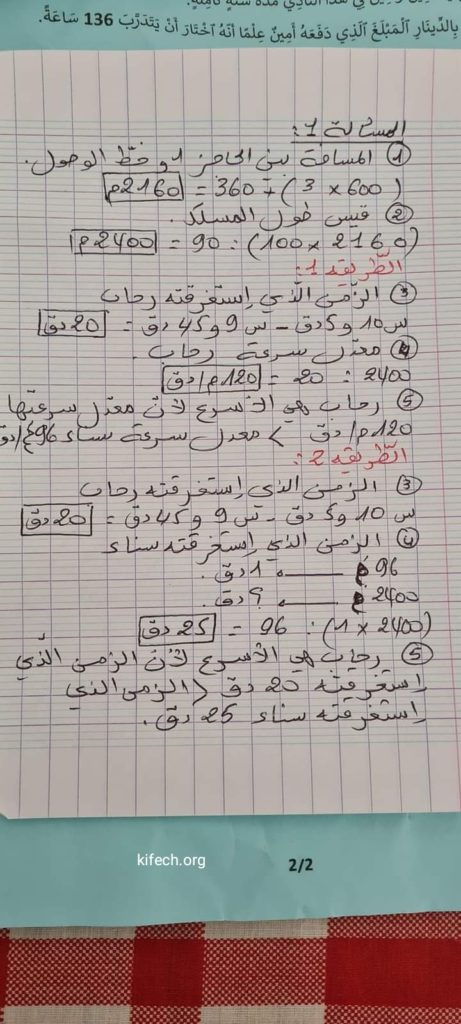 فِي هَذَا النَّادِي مُدَّةَ سَنَةٍ كَامِلَةٍ.
بِالدِّينَارِ الْمَبْلَغَ الَّذِي دَفَعَهُ أَمِينٌ عِلْمًا أَنَّهُ اخْتَارَ أَنْ يَتَدَرَّبَ 136 سَاعَةً.
المسألة 1:
① المسافة بين الحاجز 1 و خطّ الوصول.
(600 × 3) + 360 = 2160م
② قيس طول المسلك.
(2160 × 100) : 90 = 2400م
الطّريقة 1:
③ الزّمن الّذي إستغرقته رحاب
س10 و5دق - س9 و45دق = 20دق
④ معدّل سرعة رحاب.
2400 : 20 = 120م/دق
⑤ رحاب هي الأسرع لأنّ معدّل سرعتها
120م/دق > معدل سرعة سناء 96م/دق
الطّريقة 2:
③ الزمن الذي إستغرقته رحاب
س10 و5دق - س9 و45دق = 20دق
④ الزمن الذي إستغرقته سناء
96م ← 1دق.
2400م ← ؟ دق.
(2400 × 1) : 96 = 25دق
⑤ رحاب هي الأسرع لأنّ الزمن الّذي
إستغرقته 20 دق < الزمن الذي
إستغرقته سناء 25 دق.
kifech.org
2/2